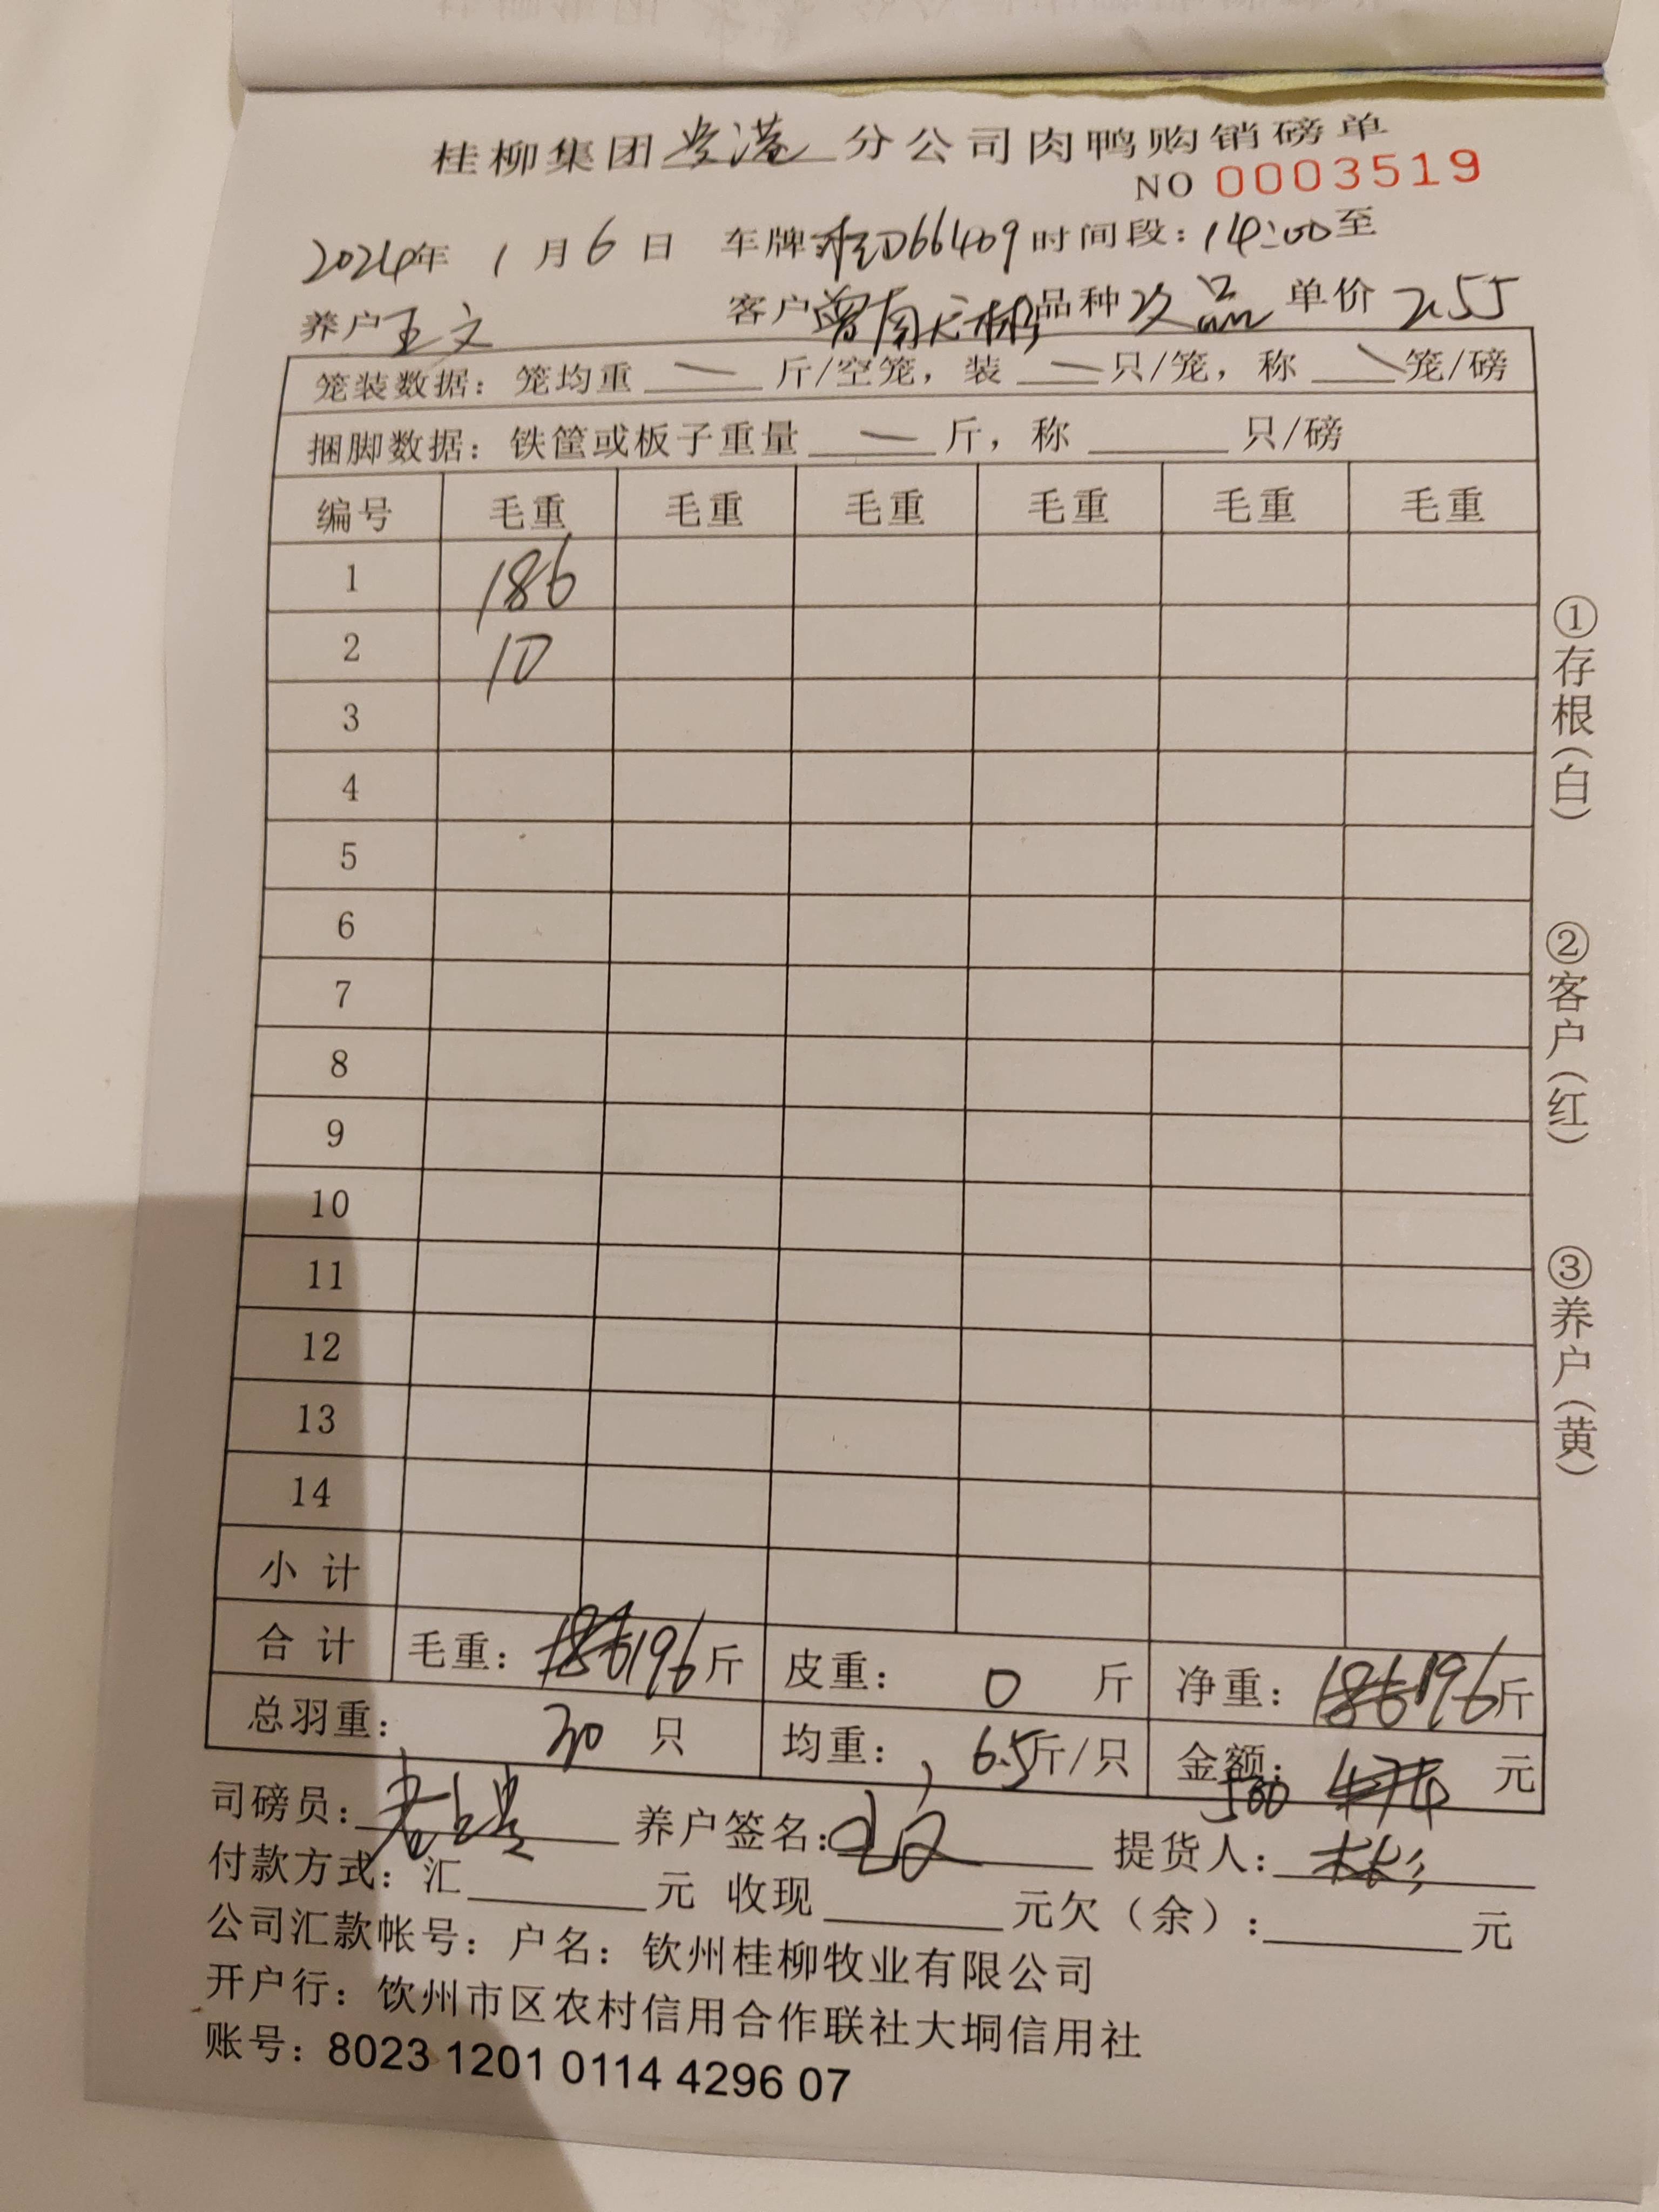 桂柳集团贵港分公司肉鸭购销磅单
NO 0003519
2024年 1月6日 车牌桂D66409 时间段：14:00至
养户王文 客户 品种次品 单价2.55
笼装数据：笼均重 — 斤/空笼，装 — 只/笼，称 — 笼/磅
捆脚数据：铁筐或板子重量 — 斤，称 只/磅
编号 毛重 毛重 毛重 毛重 毛重 毛重
1 186
2 10
3
4
5
6
7
8
9
10
11
12
13
14
小计
合计 毛重：196斤 皮重：0斤 净重：196斤
总羽重：30只 均重：6.5斤/只 金额：500 元
司磅员： 养户签名：王文 提货人：
付款方式：汇 元 收现 元欠（余）： 元
公司汇款帐号：户名：钦州桂柳牧业有限公司
开户行：钦州市区农村信用合作联社大垌信用社
账号：8023 1201 0114 4296 07
①存根（白）
②客户（红）
③养户（黄）